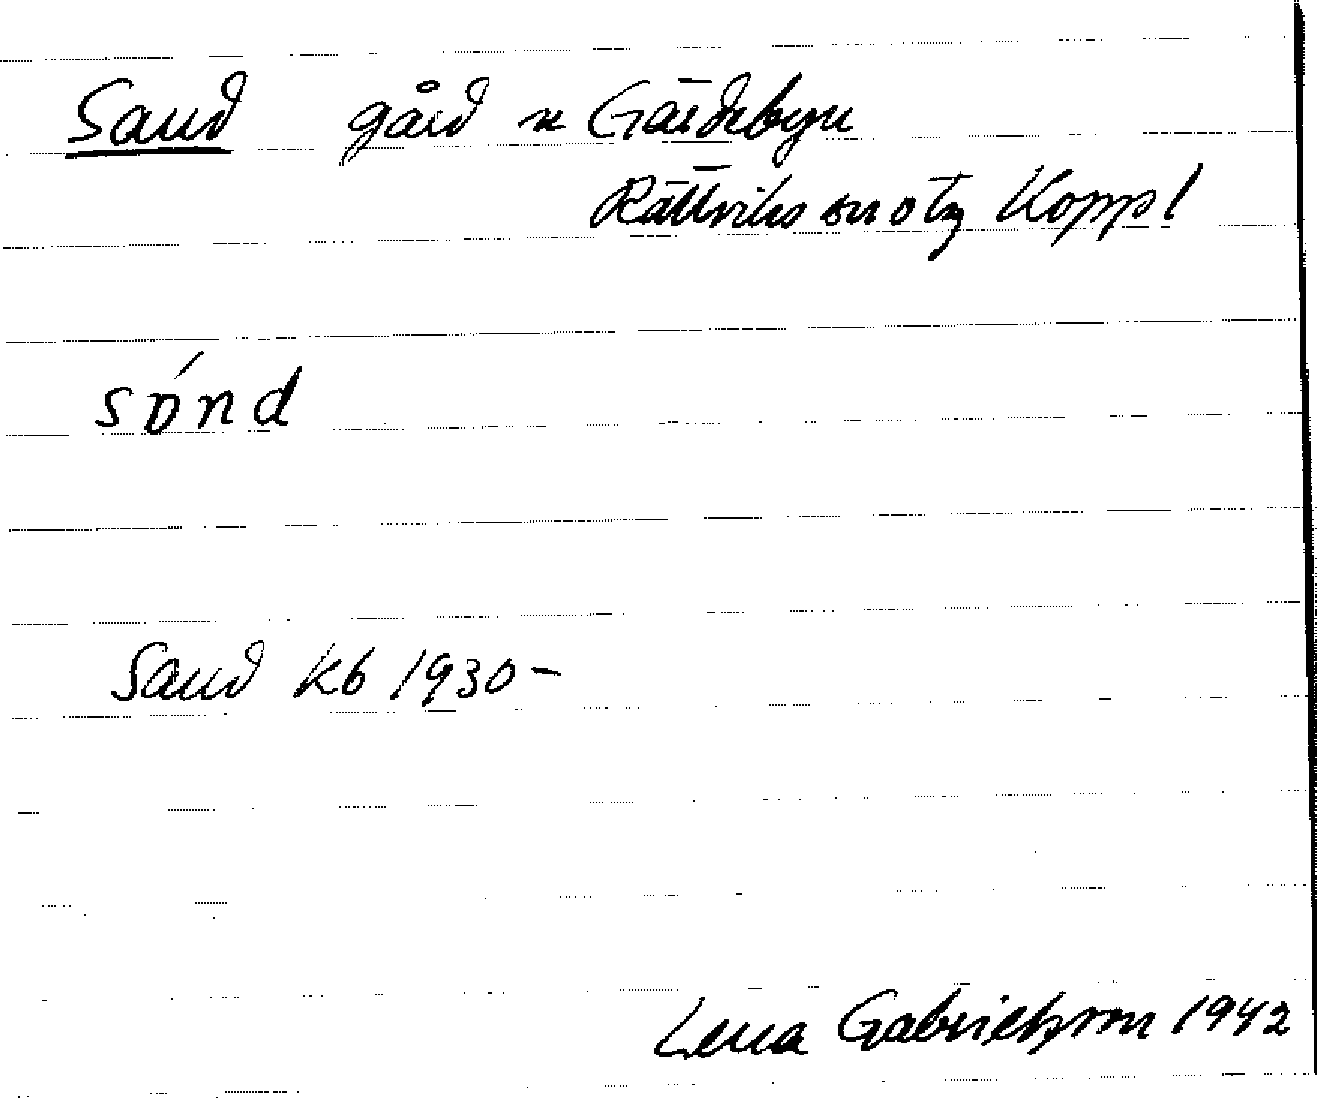 Sand gård n Gärdebyn
Rättviks sn o tg Koppl
sónd
Sand kb 1930-
Lena Gabrielsson 1942